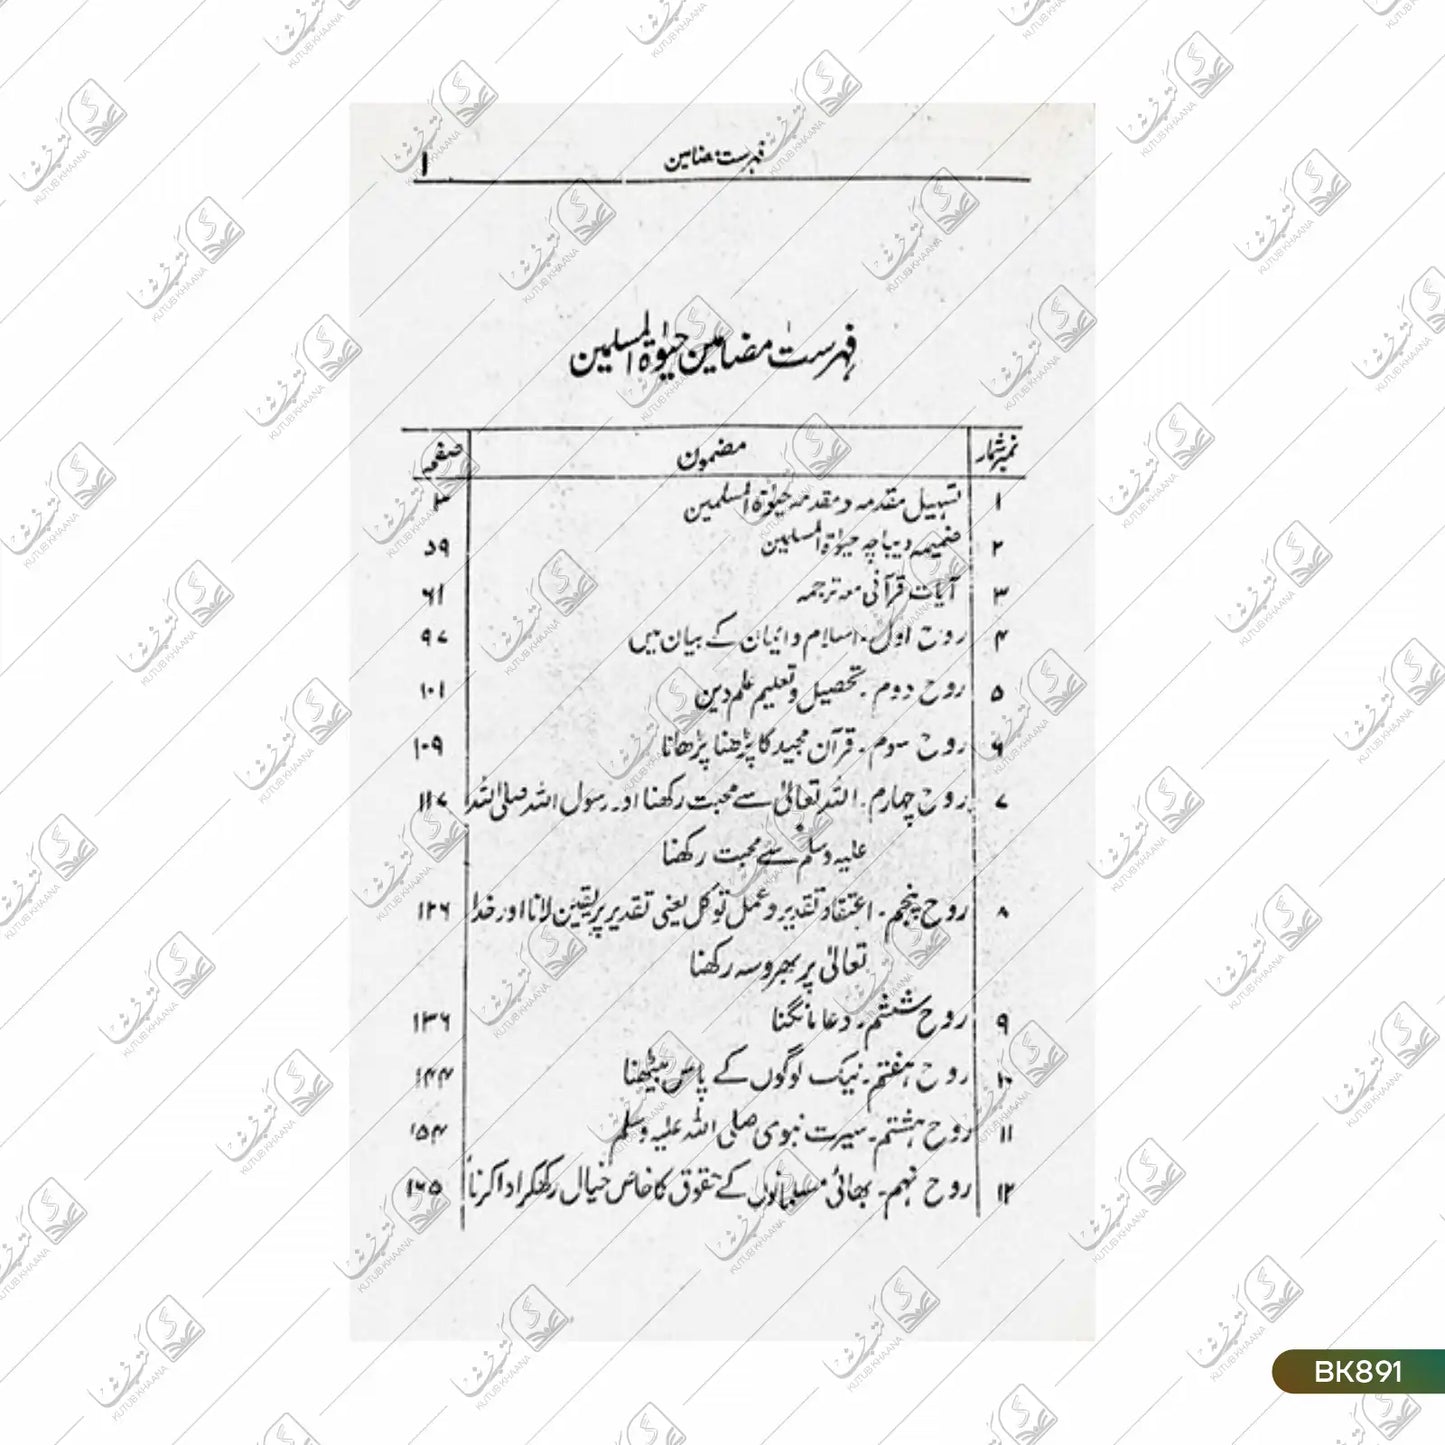 فہرست مضامین ۱
فہرست مضامین حیٰوۃ المسلمین
نمبر شمار مضمون صفحہ
۱ تسہیل مقدمہ و مقدمہ حیٰوۃ المسلمین ۳
۲ ضمیمہ دیباچہ حیٰوۃ المسلمین ۵۹
۳ آیات قرآنی مع ترجمہ ۶۱
۴ روح اول۔ اسلام و ایمان کے بیان میں ۹۷
۵ روح دوم۔ تحصیل و تعلیم علم دین ۱۰۱
۶ روح سوم۔ قرآن مجید کا پڑھنا پڑھانا ۱۰۹
۷ روح چہارم۔ اللہ تعالیٰ سے محبت رکھنا اور رسول اللہ صلی اللہ ۱۱۷
علیہ وسلم سے محبت رکھنا
۸ روح پنجم۔ اعتقاد تقدیر و عمل توکل یعنی تقدیر پر یقین لانا اور خدا ۱۲۶
تعالیٰ پر بھروسہ رکھنا
۹ روح ششم۔ دعا مانگنا ۱۳۶
۱۰ روح ہفتم۔ نیک لوگوں کے پاس بیٹھنا ۱۴۴
۱۱ روح ہشتم۔ سیرت نبوی صلی اللہ علیہ وسلم ۱۵۴
۱۲ روح نہم۔ بھائی مسلمانوں کے حقوق کا خاص خیال رکھکر ادا کرنا ۱۶۵
BK891
KUTUB KHAANA